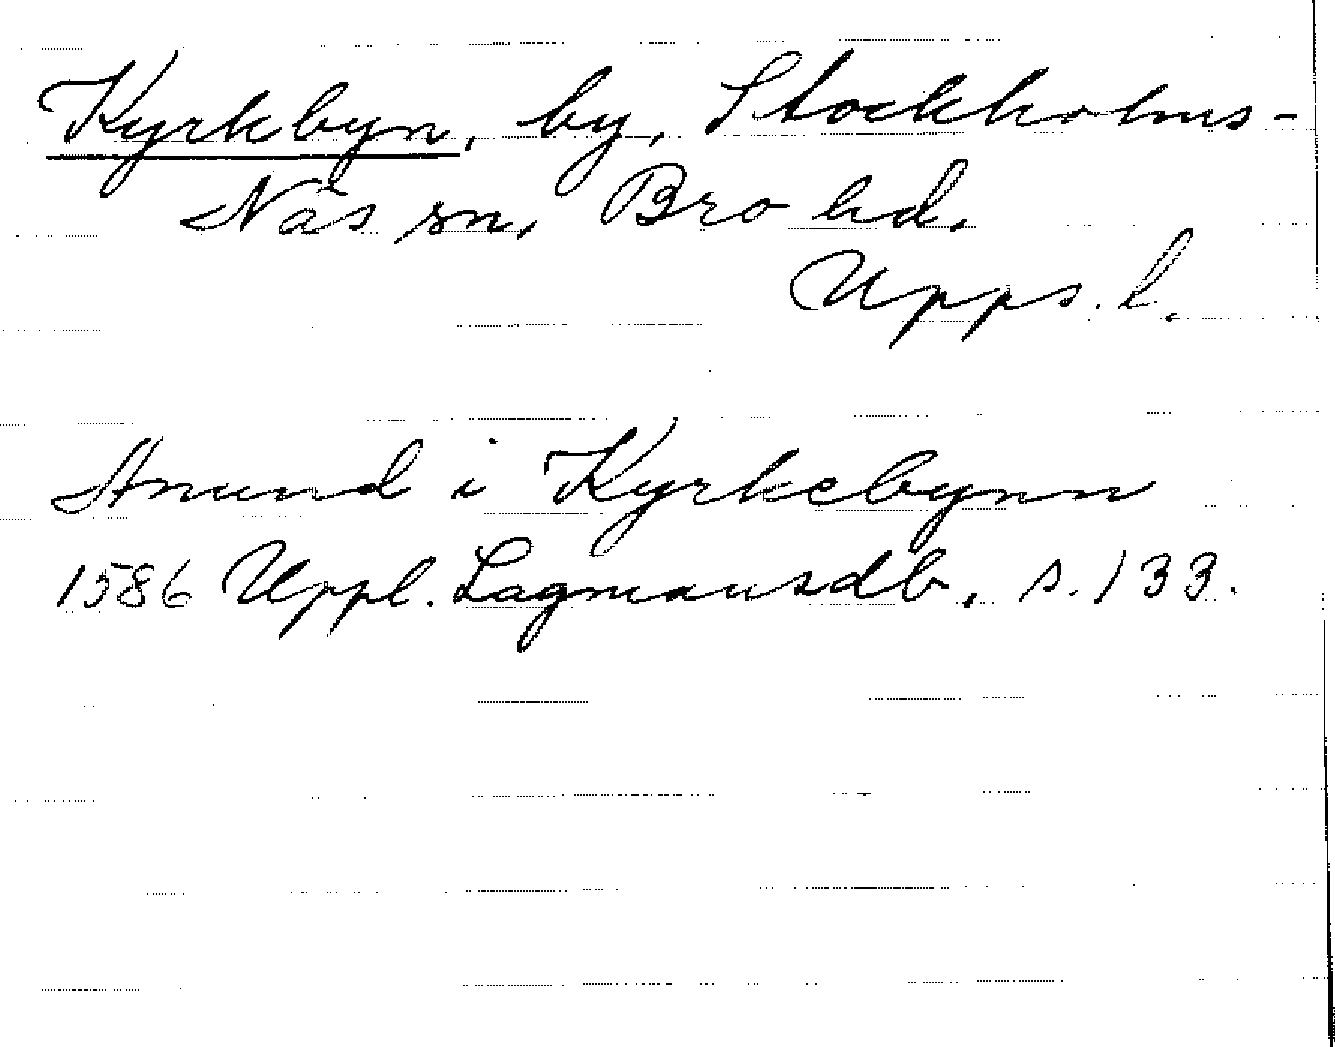 Kyrkbyn, by, Stockholms-
Näs sn, Bro hd.
Upps. l.
Anund i Kyrkebynn
1586 Uppl. Lagmansdb, s. 133.